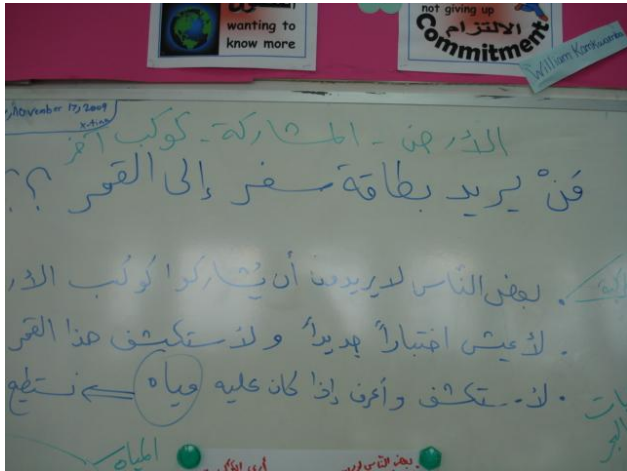 wanting to
know more
not giving up
الالتزام
Commitment
William Kamkwamba
November 17, 2009
الأرض - المشاركة - كوكب آخر
مَنْ يريد بطاقة سفر إلى القمر ؟؟
. بعض النّاس لا يريدون أن يُشاركوا كوكب الأر
. لأعيش اختباراً جديداً ولأستكشف هذا القمر
. لأستكشف وأعرف إذا كان عليه مياه نستطيع
المياه